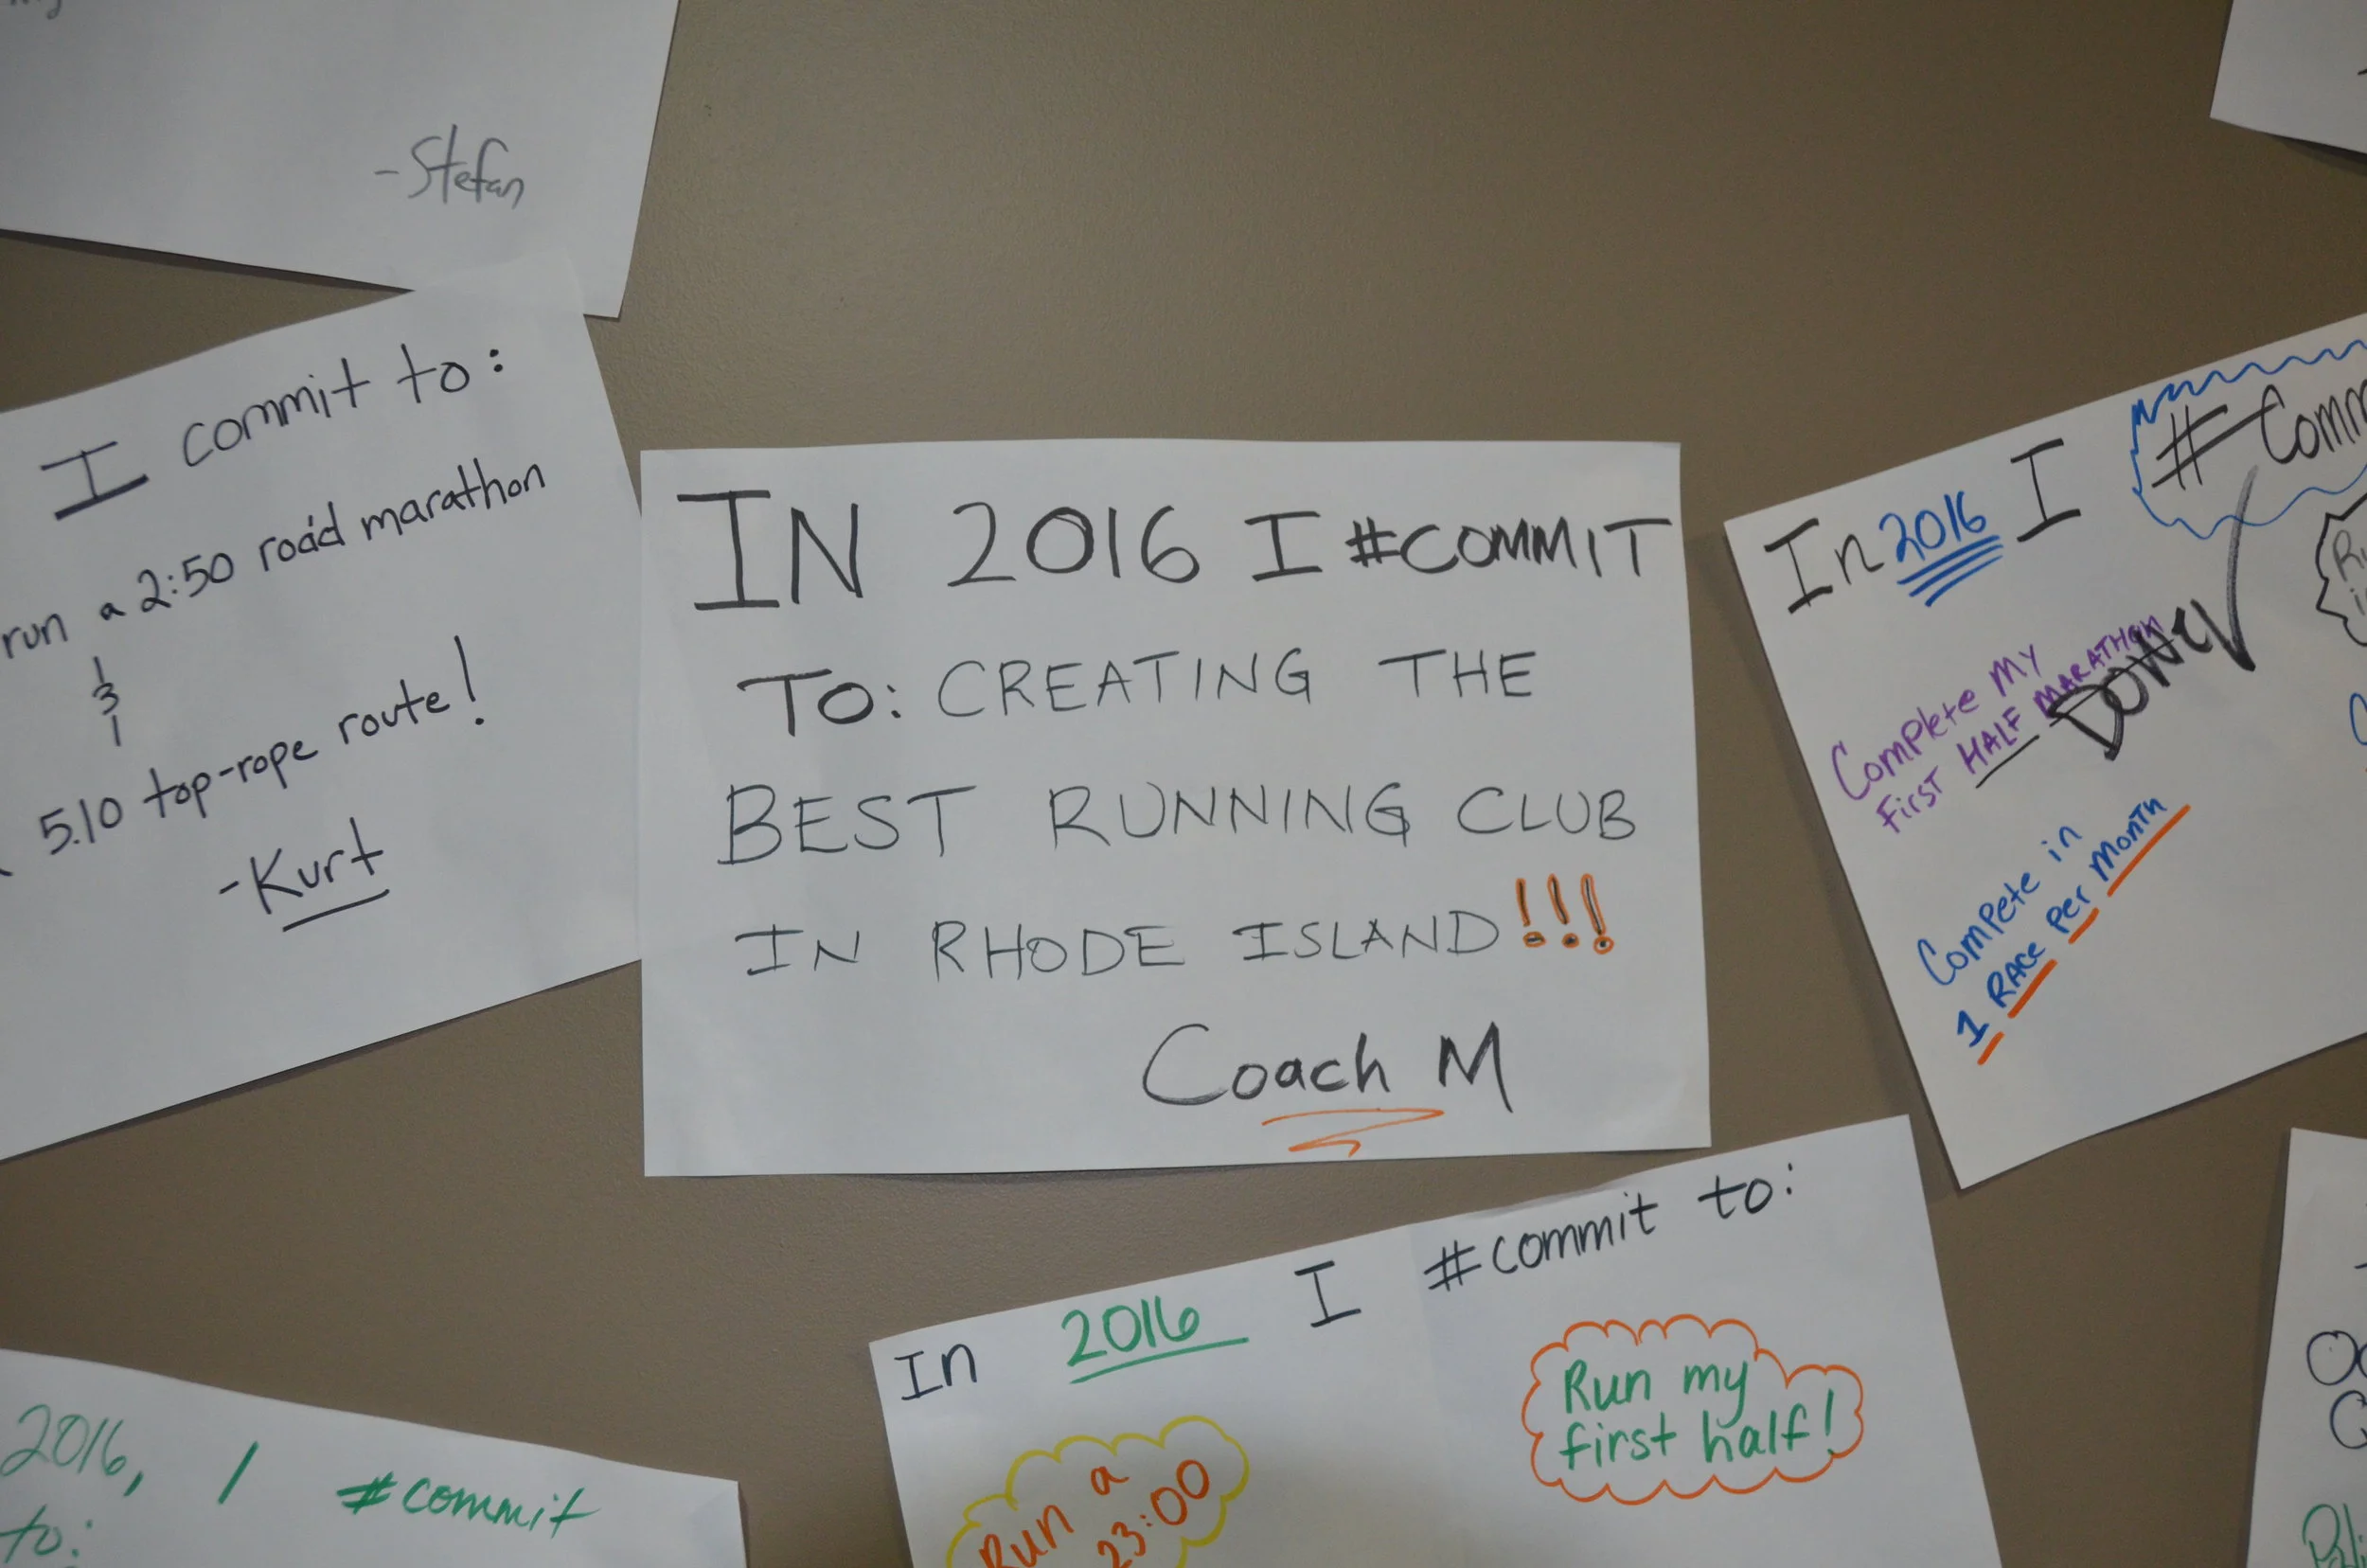 -Stefan
I commit to:
run a 2:50 road marathon
&
5.10 top-rope route!
-Kurt
IN 2016 I #COMMIT
TO: CREATING THE
BEST RUNNING CLUB
IN RHODE ISLAND!!!
Coach M
In 2016 I
Complete my
first HALF MARATHON
DONE
Compete in
1 RACE Per Month
In 2016 I #commit to:
Run a
23:00
Run my
first half!
2016, I #commit
to: